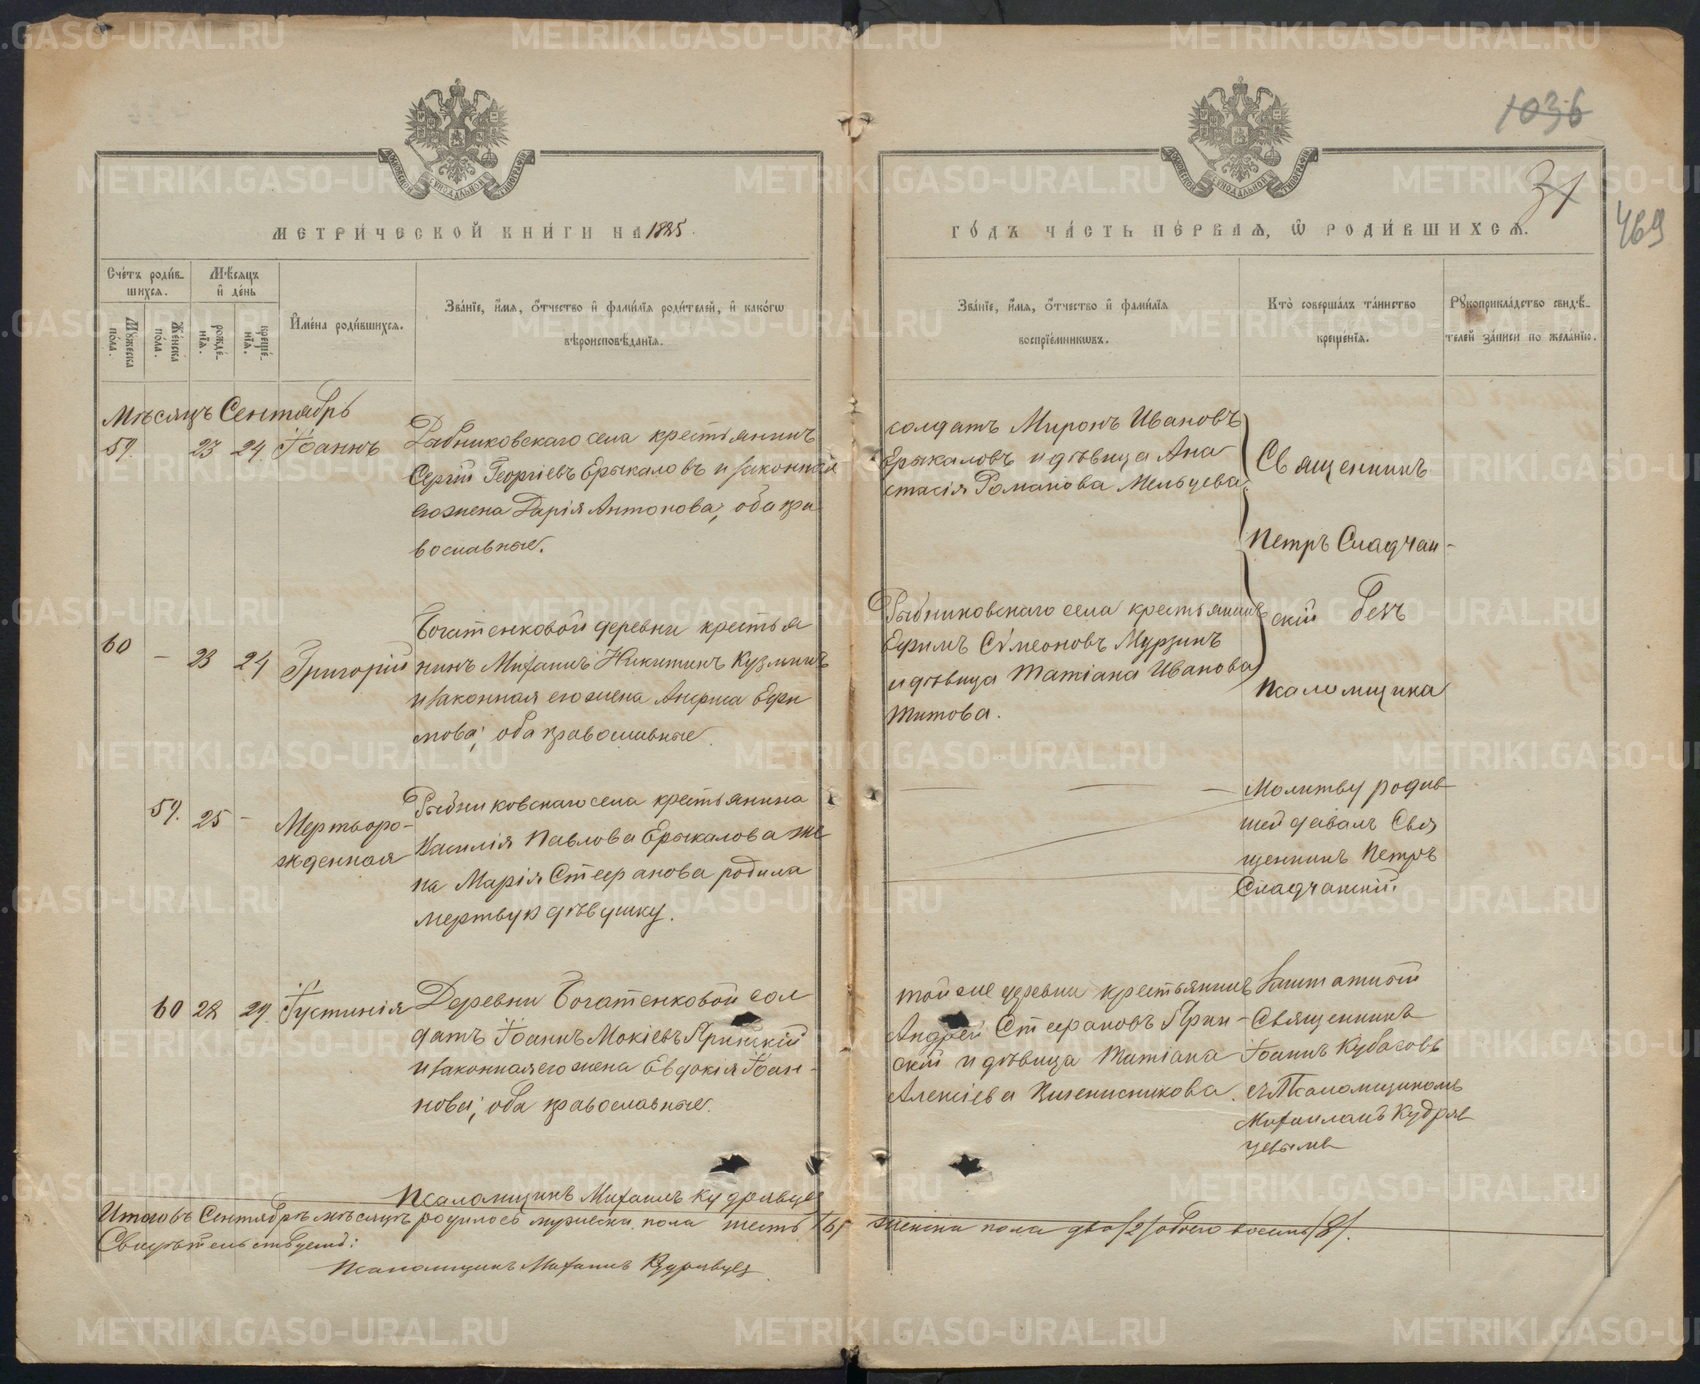 1036
31
469
МЕТРИ́ЧЕСКОЙ КНИ́ГИ НА 1885
ГО́ДЪ ЧА́СТЬ ПЕ́РВАѦ, Ѽ РОДИ́ВШИХСѦ.
Сче́тъ роди́в-
шихсѧ.
Мꙋ́жеска
по́ла.
Же́нска
по́ла.
Мѣ́сѧцъ
и҆ де́нь
рожде́-
нїѧ.
креще́-
нїѧ.
И҆мена̀ роди́вшихсѧ.
Зва́нїе, и҆́мѧ, ѻ҆́тчество и҆ фами́лїѧ роди́телей, и҆ како́гѡ
вѣроисповѣ́данїѧ.
Зва́нїе, и҆́мѧ, ѻ҆́тчество и҆ фами́лїѧ
воспрїе́мникѡвъ.
Кто̀ соверша́лъ та́инство
креще́нїѧ.
Рꙋкоприкла́дство свидѣ́-
телей за́писи по жела́нїю.
Мѣсяцъ Сентябрь
59. 23 24. Іоаннъ
Рыбниковскаго села крестьянинъ
Сергій Георгіевъ Ерыкаловъ и законная
его жена Дарія Антонова; оба пра
вославные.
солдатъ Миронъ Ивановъ
Ерыкаловъ и дѣвица Ана
стасія Романова Мельцева.
Священникъ
Петръ Сладчан-
скій безъ
Псаломщика
60 — 23 24 Григорій
Богатенковой деревни крестья
нинъ Михаилъ Никитинъ Кузминъ
и законная его жена Анфиса Ефи
мова; оба православные.
Рыбниковскаго села крестьянинъ
Ефимъ Сѵмеоновъ Мурзинъ
и дѣвица Татіана Иванова
Титова.
59. 25 — Мертворо-
жденная
Рыбниковскаго села крестьянина
Василія Павлова Ерыкалова же
на Марія Стефанова родила
мертвую дѣвушку.
Молитву родив
шей давалъ Свя
щенникъ Петръ
Сладчанскій.
60 28 29. Іустинія
Деревни Богатенковой сол
датъ Іоаннъ Мокіевъ
и законная его жена Евдокія Іоан-
нова; оба православные.
той же деревни крестьянинъ
Андрей Стефановъ
и дѣвица Татіана
Алексіева
Заштатный
Священникъ
Іоаннъ Кубасовъ
съ Псаломщикомъ
Михаиломъ Кудряв
цевымъ
Псаломщикъ Михаилъ Кудрявцев
Итого въ Сентябрѣ мѣсяцѣ родилось мужеска пола шесть /6/ женска пола два /2/ обоего восемь /8/.
Свидѣтельствуетъ:
Псаломщикъ Михаилъ Кудрявцев
METRIKI.GASO-URAL.RU